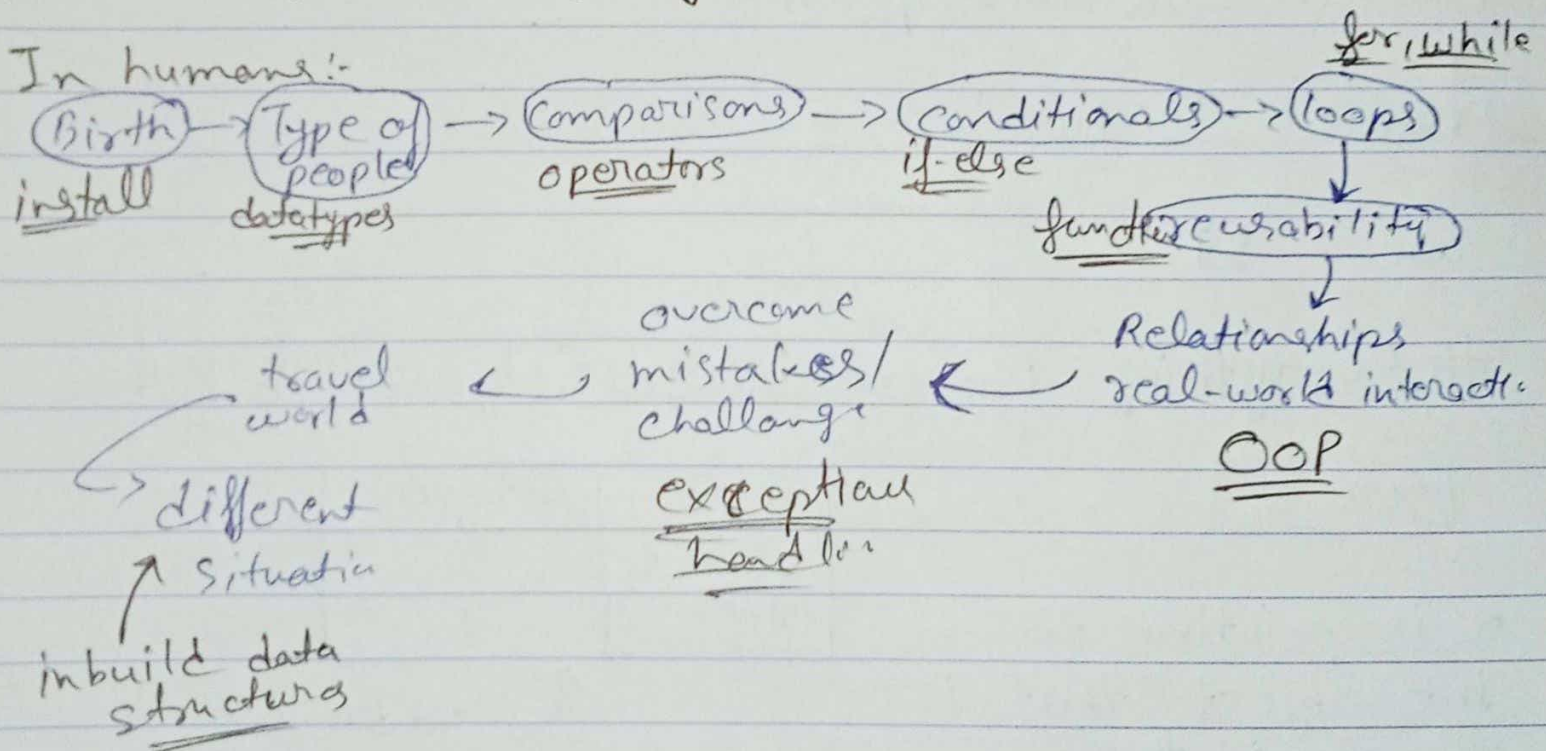 for, while
In humans:-
Birth → Type of people → Comparisons → Conditionals → loops
install
datatypes
operators
if-else
reusability
Relationships
real-world
OOP
overcome
mistakes/
travel
world
different
exception
inbuild data
structures